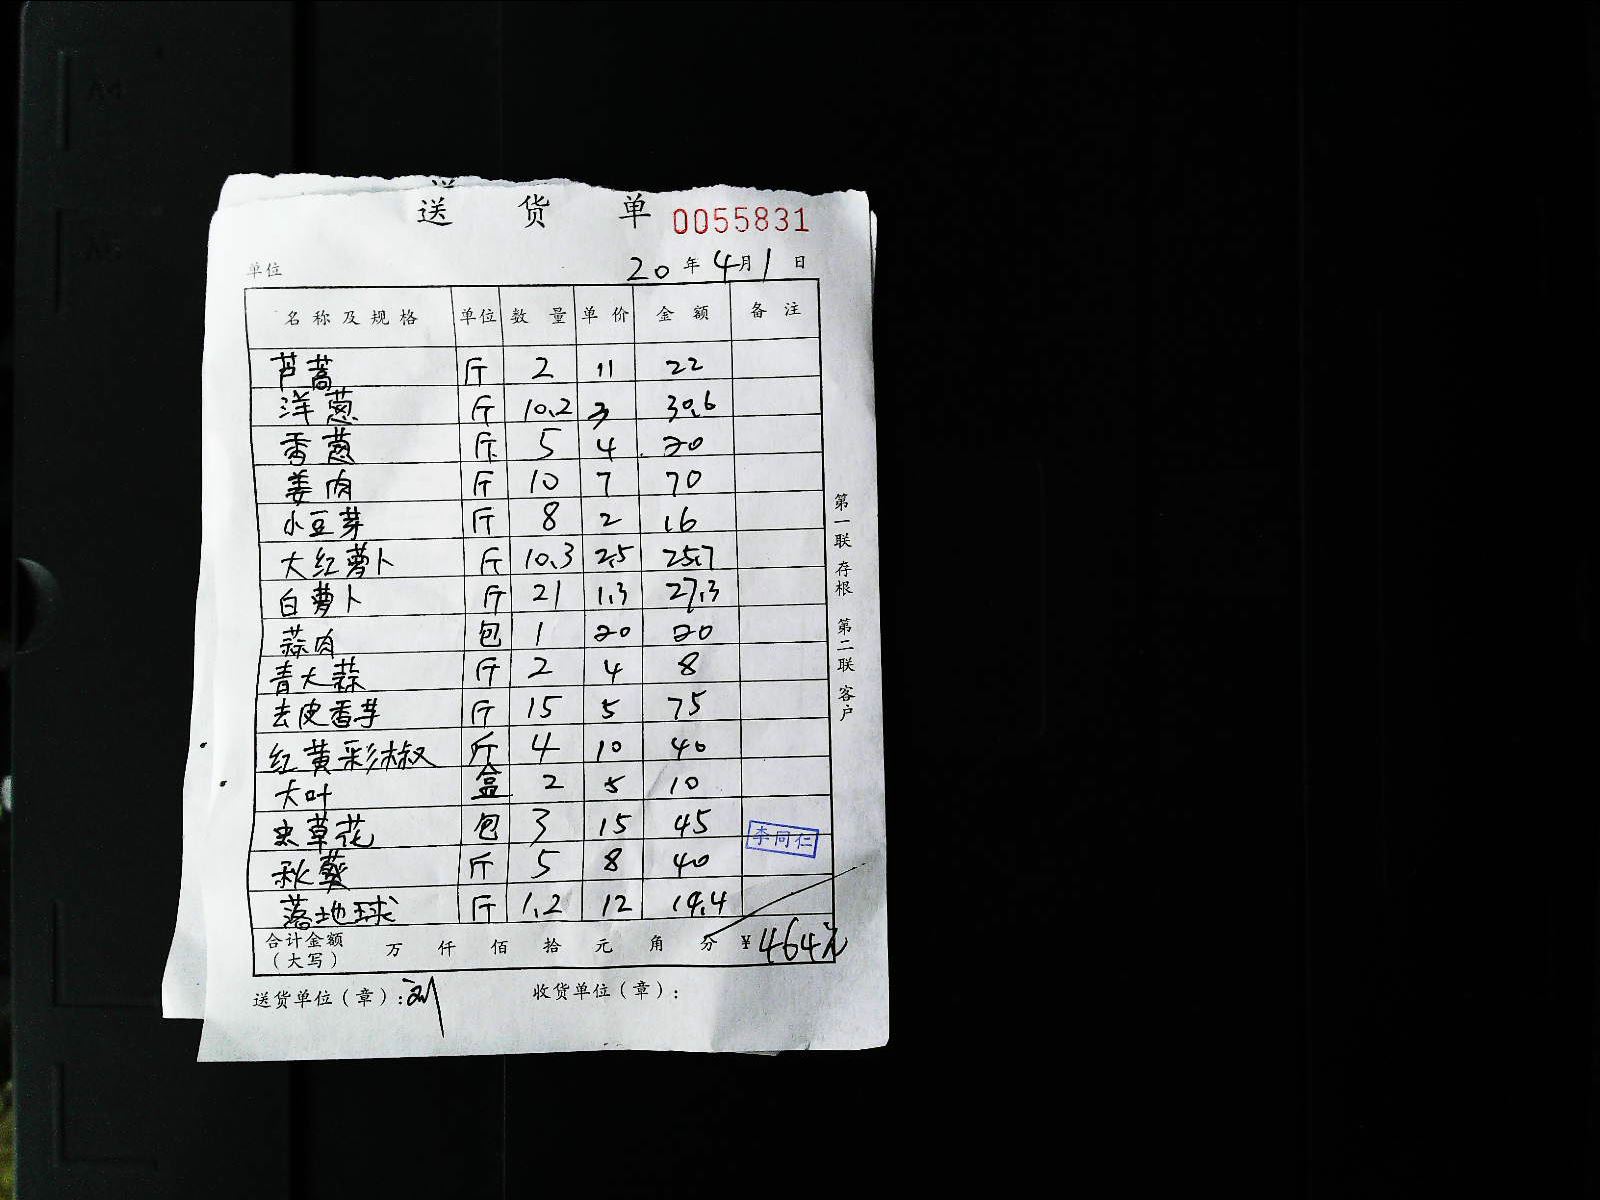 送 货 单 0055831
单位 20年4月1日
名称及规格 单位 数量 单价 金额 备注
芦蒿 斤 2 11 22
洋葱 斤 10.2 3 30.6
香葱 斤 5 4 20
姜肉 斤 10 7 70
小豆芽 斤 8 2 16
大红萝卜 斤 10.3 2.5 25.7
白萝卜 斤 21 1.3 27.3
蒜肉 包 1 20 20
青大蒜 斤 2 4 8
去皮香芋 斤 15 5 75
红黄彩椒 斤 4 10 40
大叶 盒 2 5 10
虫草花 包 3 15 45
李同仁
秋葵 斤 5 8 40
落地球 斤 1.2 12 14.4
合计金额（大写） 万 仟 佰 拾 元 角 分 ¥464元
送货单位（章）：刘 收货单位（章）：
第一联 存根 第二联 客户